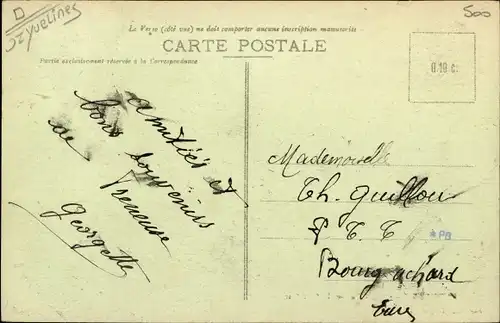 D
52 Yvelines
500
Le Verso (côté vue) ne doit comporter aucune inscription manuscrite
CARTE POSTALE
Partie exclusivement réservée à la Correspondance
0.10 c.
amitiés et
bons souvenirs
de Freneuse
Georgette
Mademoiselle
Th. Guillou
P T T
Bourg achard
Eure